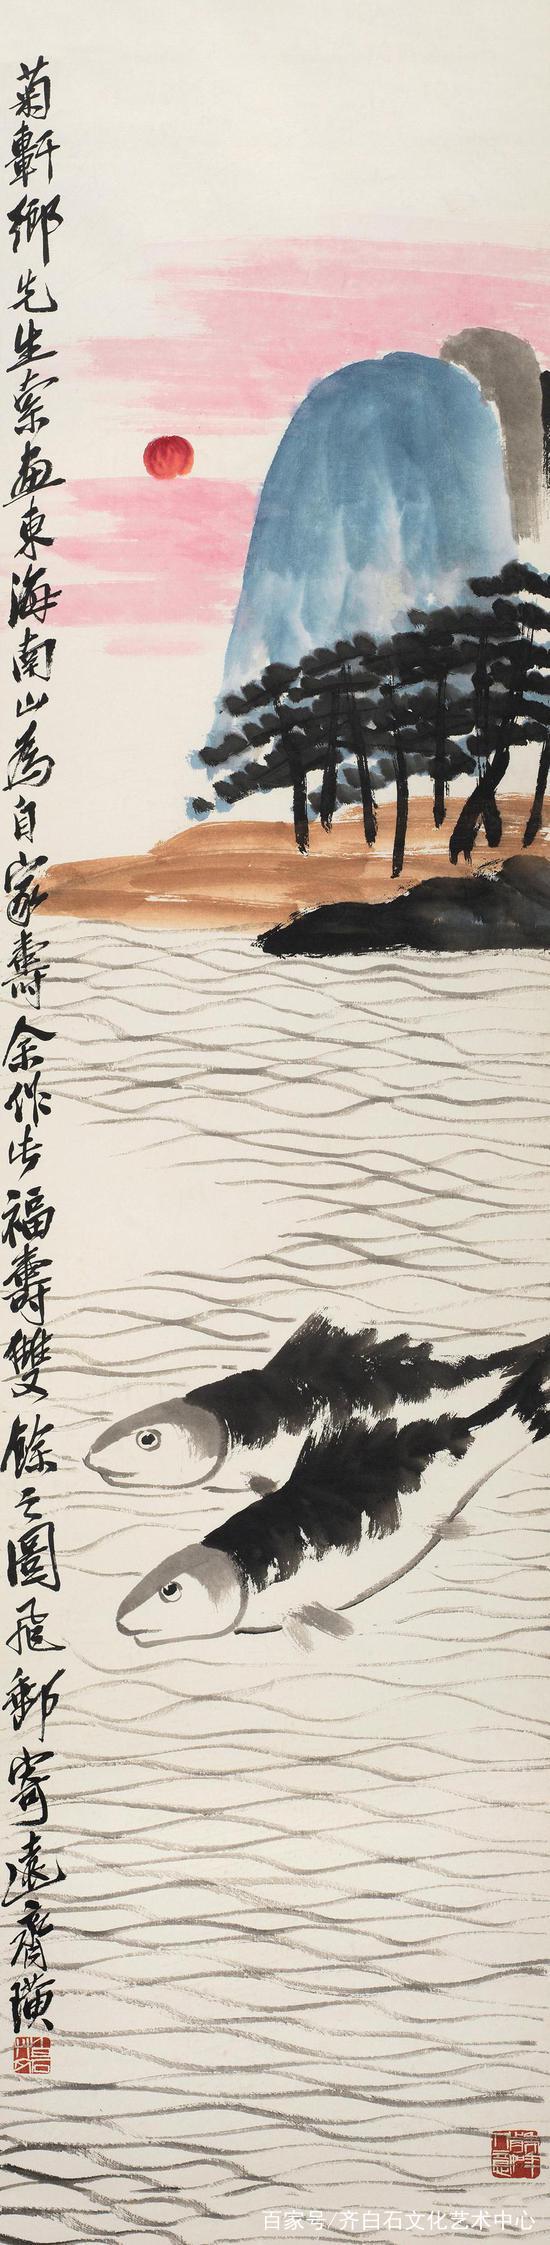 菊軒鄉先生索畫東海南山為自家壽余作此福壽雙餘之圖飛郵寄遠齊璜
百家号/齐白石文化艺术中心